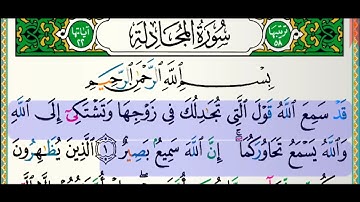 ترتيبها ٥٨
سُورَةُ المُجَادلَةِ
آياتها ٢٢
بِسْمِ اللَّهِ الرَّحْمَٰنِ الرَّحِيمِ
قَدْ سَمِعَ اللَّهُ قَوْلَ الَّتِي تُجَٰدِلُكَ فِي زَوْجِهَا وَتَشْتَكِيٓ إِلَى اللَّهِ
وَاللَّهُ يَسْمَعُ تَحَاوُرَكُمَآ ۚ إِنَّ اللَّهَ سَمِيعٌۢ بَصِيرٌ ١ الَّذِينَ يُظَٰهِرُونَ